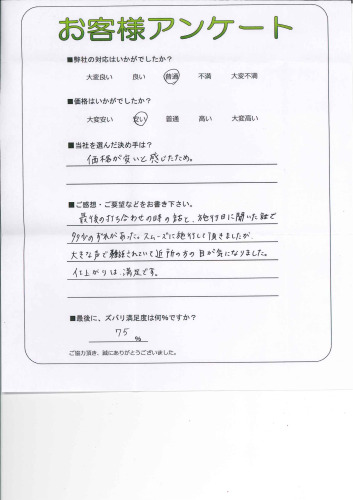 お客様アンケート
■弊社の対応はいかがでしたか?
大変良い 良い 普通 不満 大変不満
■価格はいかがでしたか?
大変安い 安い 普通 高い 大変高い
■当社を選んだ決め手は?
価格が安いと感じたため。
■ご感想・ご要望などをお書き下さい。
最後の打ち合わせの時の話と、施行日に聞いた話で
多少のずれがあった。スムーズに施行して頂きましたが、
大きな声で雑談されていて近所の方の目が気になりました。
仕上がりは満足です。
■最後に、ズバリ満足度は何%ですか?
75
%
ご協力頂き、誠にありがとうございました。